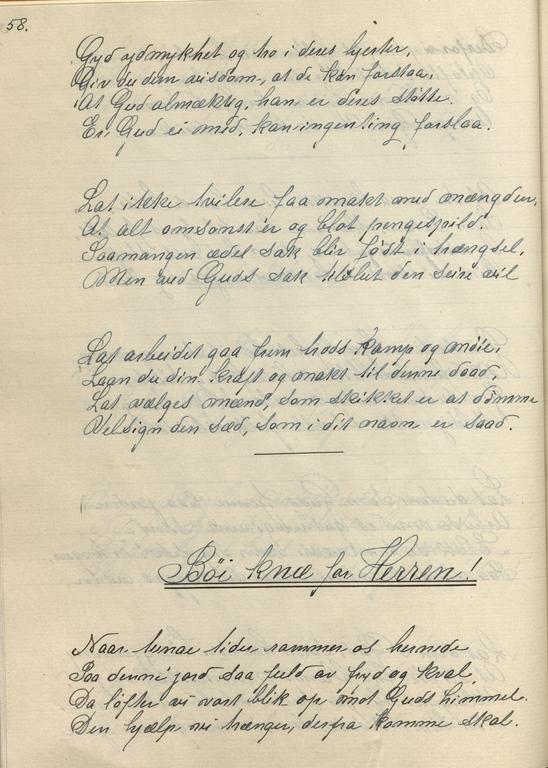 58.
Gyd ydmykhet og tro i deres hjerter,
Giv du dem visdom, at de kan forstaa,
At Gud almæktig, han er deres støtte.
Er Gud ei med, kan ingenting forslaa.
Lat ikke tvilere faa makt med mængden,
At alt omsonst er og blot pengespild.
Saamangen ædel sak blir født i trængsel,
Men ved Guds sak tilslut den seire vil
Lat arbeidet gaa frem trods kamp og møie,
Laan du din kraft og makt til denne daad,
Lat vælges mænd, som skikket er at dømme
Velsign den sæd, som i dit navn er saad.
Bøi knæ for Herren!
Naar tunge tider rammer os hernede
Paa denne jord saa fuld av fryd og kval,
Da løfter vi vort blik op mot Guds himmel.
Den hjælp vi trænger, derfra komme skal.